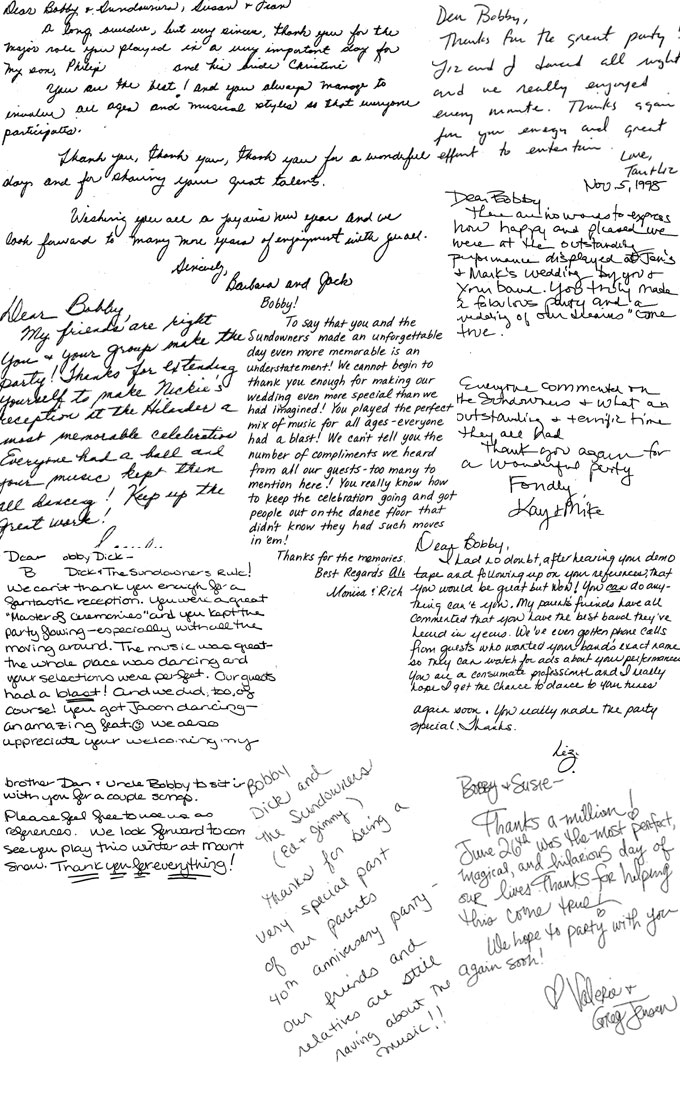 Dear Bobby & Sundowners, Susan & Jean
A long overdue, but very sincere, thank you for the
major role you played in a very important day for
my son, Philip and his bride Christine
You are the best! and you always manage to
involve all ages and musical styles so that everyone
participates.
Thank you, thank you, thank you for a wonderful
day and for sharing your great talents.
Wishing you all a joyous new year and we
look forward to many more years of enjoyment with you all.
Sincerely,
Barbara and Jack
Dear Bobby,
Thanks for the great party!
Liz and I danced all night
and we really enjoyed
every minute. Thanks again
for your energy and great
effort to entertain.
Love,
Liz
Nov. 5, 1995
Dear Bobby
There are no words to express
how happy and pleased we
were at the outstanding
performance displayed at Jen's
& Mark's wedding by you &
your band. You truly made
a fabulous party and a
wedding of our dreams "come
true.
Everyone commented on
the Sundowners & what an
outstanding & terrific time
they all had
Thank you again for
a wonderful party
Fondly,
Kay & Mike
Dear Bobby,
My friends are right
You & your group make the
party! Thanks for extending
yourself to make Nickie's
reception at the Hilander a
most memorable celebration
Everyone had a ball and
your music kept them
all dancing! Keep up the
great work!
Bobby!
To say that you and the
Sundowners made an unforgettable
day even more memorable is an
understatement! We cannot begin to
thank you enough for making our
wedding even more special than we
had imagined! You played the perfect
mix of music for all ages - everyone
had a blast! We can't tell you the
number of compliments we heard
from all our guests - too many to
mention here! You really know how
to keep the celebration going and got
people out on the dance floor that
didn't know they had such moves
in 'em!
Thanks for the memories.
Best Regards
Monica & Rich
Dear obby Dick -
B Dick & The Sundowners Rule!
We can't thank you enough for a
fantastic reception. You were a great
"Master of Ceremonies" and you kept the
party flowing - especially with all the
moving around. The music was great -
the whole place was dancing and
your selections were perfect. Our guests
had a blast! And we did, too, of
course! You got Jason dancing -
an amazing feat ☺ We also
appreciate your welcoming my
brother Dan & Uncle Bobby to sit in
with you for a couple songs.
Please feel free to use us as
references. We look forward to com
see you play this winter at Mount
Snow. Thank you for everything!
Dear Bobby,
I had no doubt, after hearing your demo
tape and following up on your references, that
you would be great but Wow! You can do any-
thing can't you. My parent's friends have all
commented that you have the best band they've
heard in years. We've even gotten phone calls
from guests who wanted your band's exact name
so they can watch for ads about your performances
You are a consumate professional and I really
hope I get the chance to dance to your tunes
again soon. You really made the party
special. Thanks.
Liz.
Bobby
Dick and
The Sundowners
(Ed & Jimmy)
Thanks for being a
very special part
of our parents
40th anniversary party -
our friends and
relatives are still
raving about the
music!!
Bobby & Susie -
Thanks a million!
June 26th was the most perfect,
magical, and hilarious day of
our lives - Thanks for helping
this come true!
We hope to party with you
again soon!
♡ Valerie &
Greg Jensen